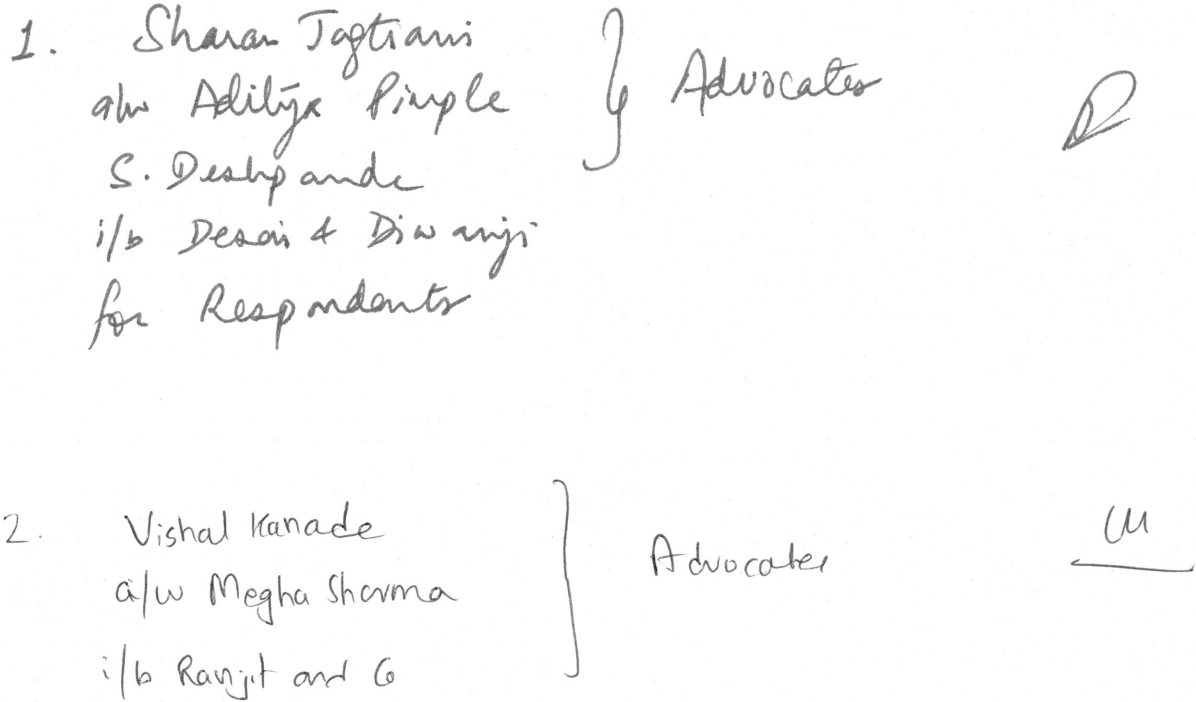 1. Sharan Jagtiani
a/w Aditya Pimple
S. Deshpande
i/b Desai & Diwanji
for Respondents
Advocates
2. Vishal Kanade
a/w Megha Sharma
i/b Ranjit and Co
Advocates